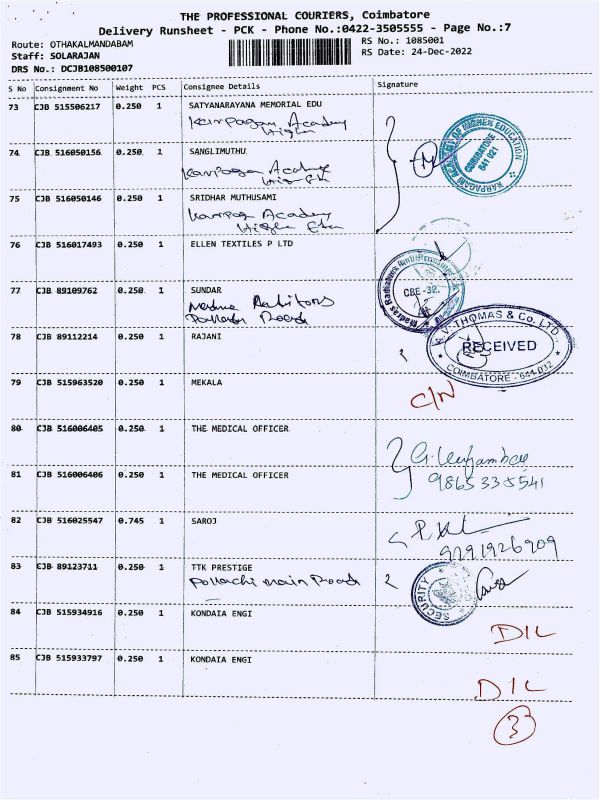 THE PROFESSIONAL COURIERS, Coimbatore
Delivery Runsheet - PCK - Phone No.:0422-3505555 - Page No.:7
Route: OTHAKALMANDABAM
RS No.: 1085001
Staff: SOLARAJAN
RS Date: 24-Dec-2022
DRS No.: DCJB108500107
S No Consignment No Weight PCS Consignee Details Signature
73 CJB 515506217 0.250 1 SATYANARAYANA MEMORIAL EDU
Karpagam Academy
Higher
KARPAGAM ACADEMY OF HIGHER EDUCATION
COIMBATORE
641 021
74 CJB 516050156 0.250 1 SANGLIMUTHU
Karpagam Academy
75 CJB 516050146 0.250 1 SRIDHAR MUTHUSAMI
Karpag Academy
Higher Edu
76 CJB 516017493 0.250 1 ELLEN TEXTILES P LTD
77 CJB 89109762 0.250 1 SUNDAR
Pollachi Road
CBE-32
78 CJB 89112214 0.250 1 RAJANI
V. THOMAS & Co. LTD.,
RECEIVED
COIMBATORE - 641 032
79 CJB 515963520 0.250 1 MEKALA
C/N
80 CJB 516006405 0.250 1 THE MEDICAL OFFICER
81 CJB 516006406 0.250 1 THE MEDICAL OFFICER
9865335541
82 CJB 516025547 0.745 1 SAROJ
9291926909
83 CJB 89123711 0.250 1 TTK PRESTIGE
Pollachi main Road
SECURITY
84 CJB 515934916 0.250 1 KONDAIA ENGI
DIL
85 CJB 515933797 0.250 1 KONDAIA ENGI
DIL
3